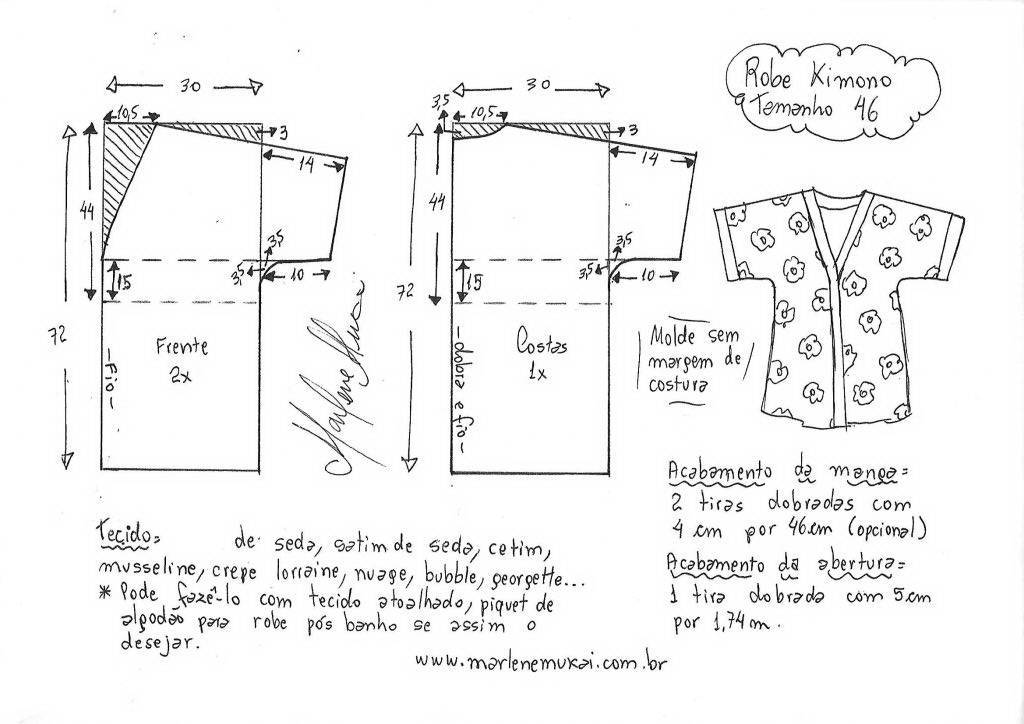 Robe Kimono
Tamanho 46
30
10,5
3
14
44
72
15
3,5
3,5
10
Frente
2x
-Fio-
Marlene Mukai
30
3,5
10,5
3
14
44
72
15
3,5
3,5
10
Costas
1x
-dobra e fio-
Molde sem
margem de
costura
Acabamento da manga=
2 tiras dobradas com
4 cm por 46cm (opcional)
Acabamento da abertura=
1 tira dobrada com 5cm
por 1,74m.
Tecido= de seda, satim de seda, cetim,
musseline, crepe lorraine, nuage, bubble, georgette...
* Pode fazê-lo com tecido atoalhado, piquet de
algodão para robe pós banho se assim o
desejar.
www.marlenemukai.com.br